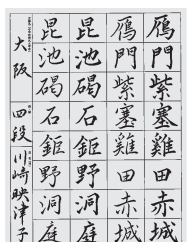 鴈門紫塞雞田赤城
鴈門紫塞雞田赤城
昆池碣石鉅野洞庭
昆池碣石鉅野洞庭
大阪 四段 川崎映津子